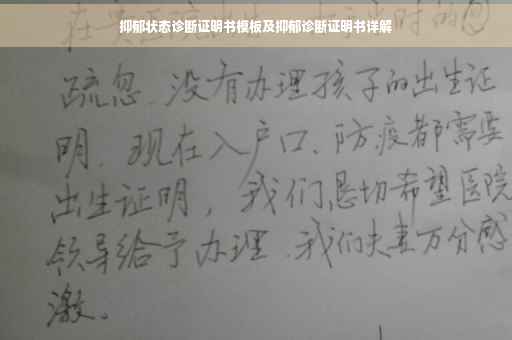 抑郁状态诊断证明书模板及抑郁诊断证明书详解
疏忽、没有办理孩子的出生证
明。现在入户口、防疫都需要
出生证明，我们恳切希望医院
领导给予办理、我们夫妻万分感
激。